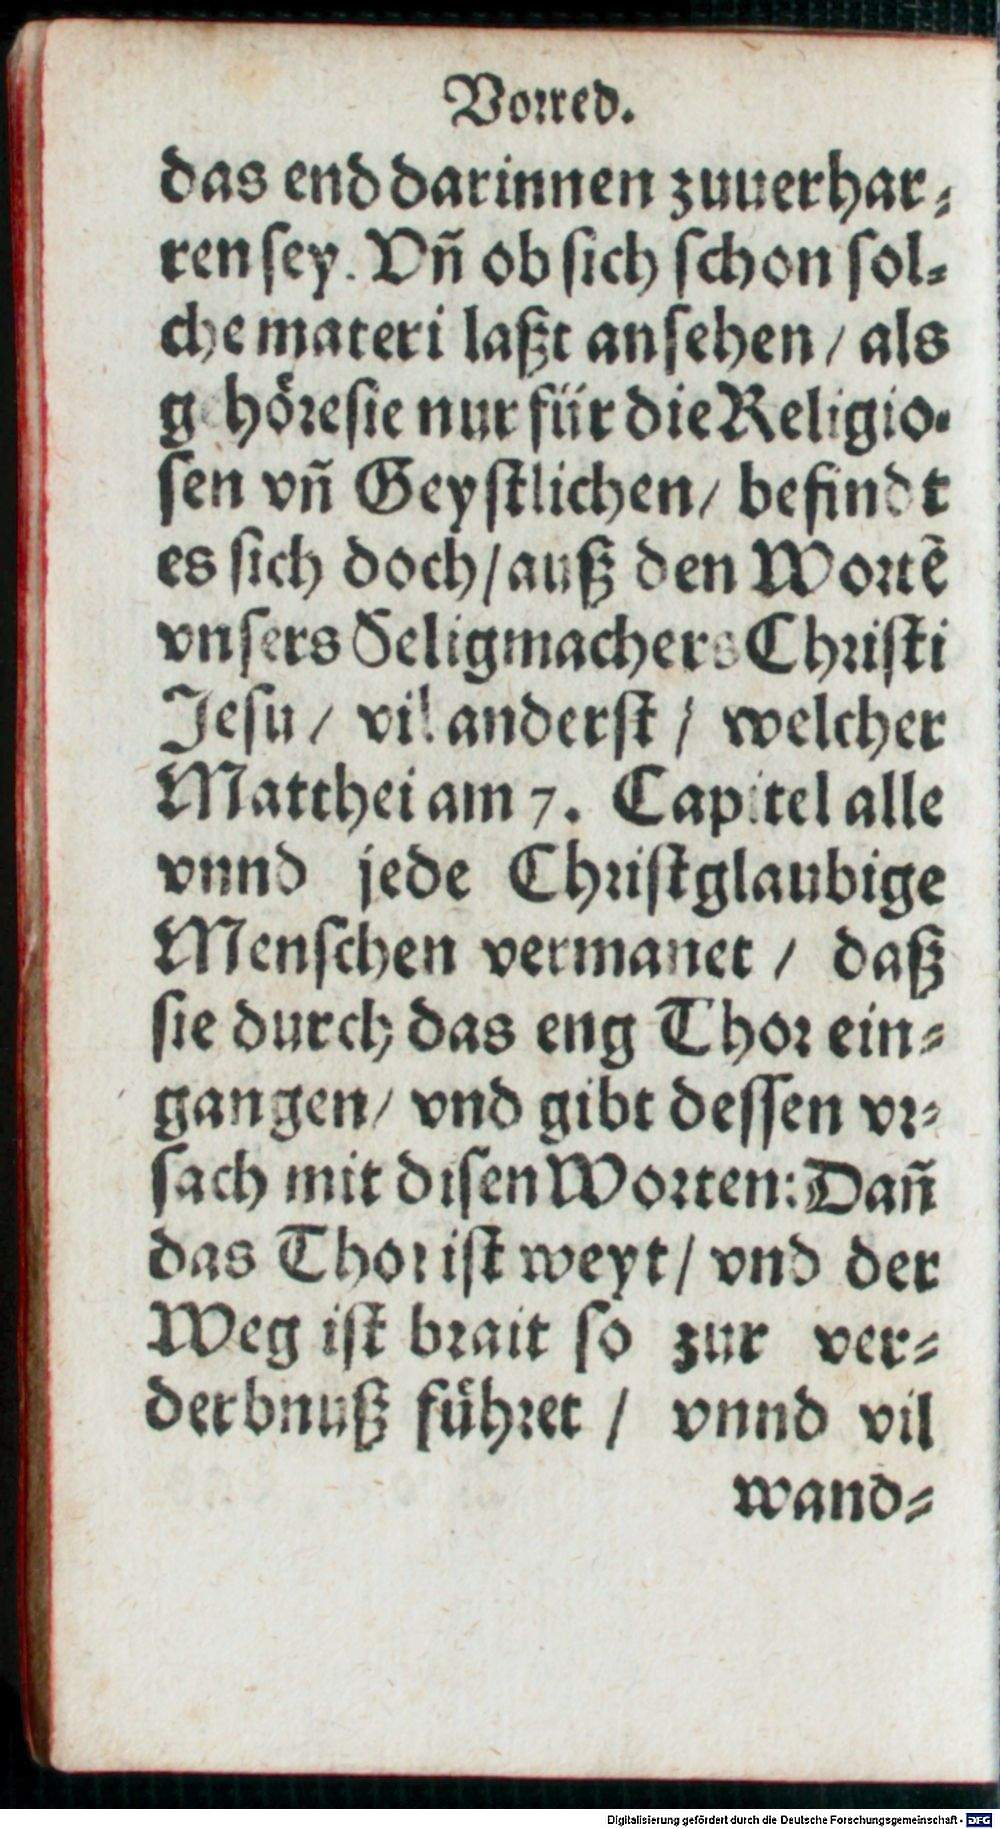 Vorred.
das end darinnen zuuerhar-
ren sey. Vñ ob sich schon sol-
che materi laßt ansehen / als
gehöre sie nur für die Religio-
sen vñ Geystlichen / befindt
es sich doch / auß den Wortẽ
vnsers Seligmachers Christi
Jesu / vil anderst / welcher
Matthei am 7. Capitel alle
vnnd jede Christglaubige
Menschen vermanet / daß
sie durch das eng Thor ein-
gangen / vnd gibt dessen vr-
sach mit disen Worten: Dañ
das Thor ist weyt / vnd der
Weg ist brait so zur ver-
derbnuß führet / vnnd vil
wand-
Digitalisierung gefördert durch die Deutsche Forschungsgemeinschaft - DFG